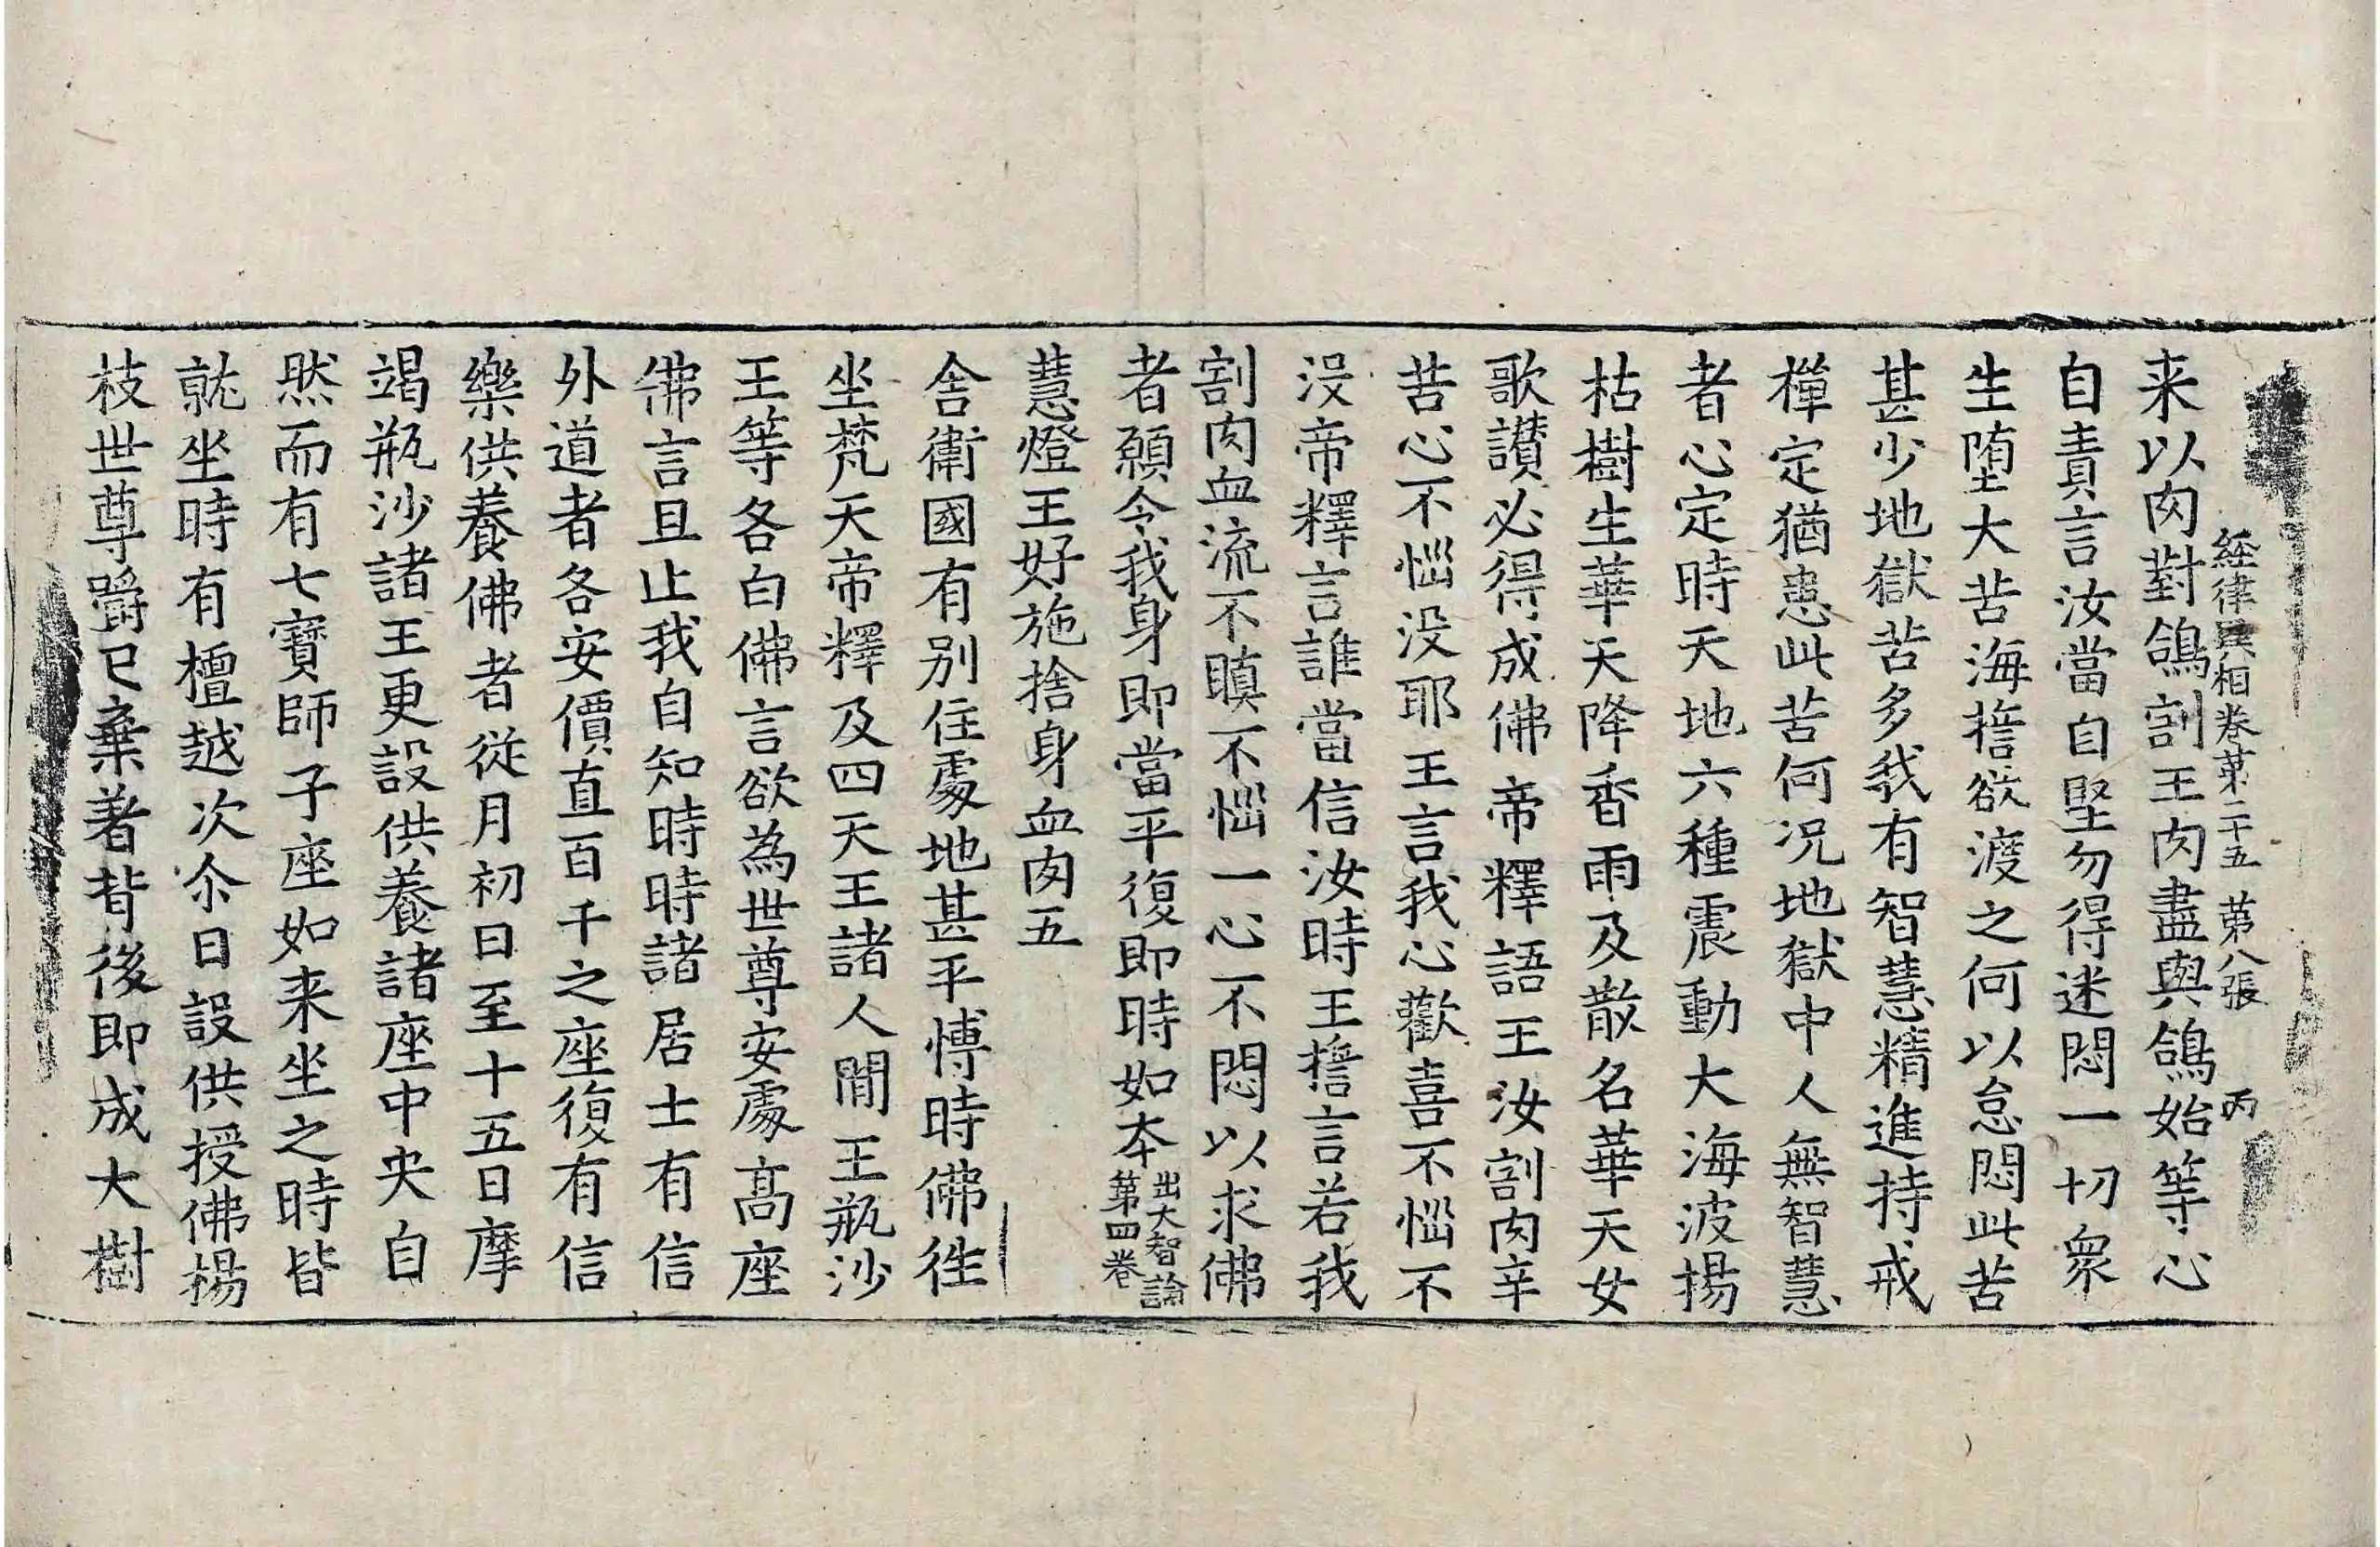 經律異相卷第二十五 第八張 丙
来以肉對鴿割王肉盡與鴿始等心
自責言汝當自堅勿得迷悶一切衆
生堕大苦海誓欲渡之何以怠悶此苦
甚少地獄苦多我有智慧精進持戒
禪定猶患此苦何况地獄中人無智慧
者心定時天地六種震動大海波揚
枯樹生華天降香雨及散名華天女
歌讃必得成佛帝釋語王汝割肉辛
苦心不惱没耶王言我心歡喜不惱不
没帝釋言誰當信汝時王誓言若我
割肉血流不瞋不惱一心不悶以求佛
者願令我身即當平復即時如本出大智論第四卷
慧燈王好施捨身血肉五
舍衛國有别住處地甚平愽時佛徃
坐梵天帝釋及四天王諸人間王瓶沙
王等各白佛言欲為世尊安處髙座
佛言且止我自知時時諸居士有信
外道者各安價直百千之座復有信
樂供養佛者從月初日至十五日摩
竭瓶沙諸王更設供養諸座中央自
然而有七寶師子座如来坐之時皆
就坐時有檀越次尒日設供授佛楊
枝世尊嚼已棄著背後即成大樹